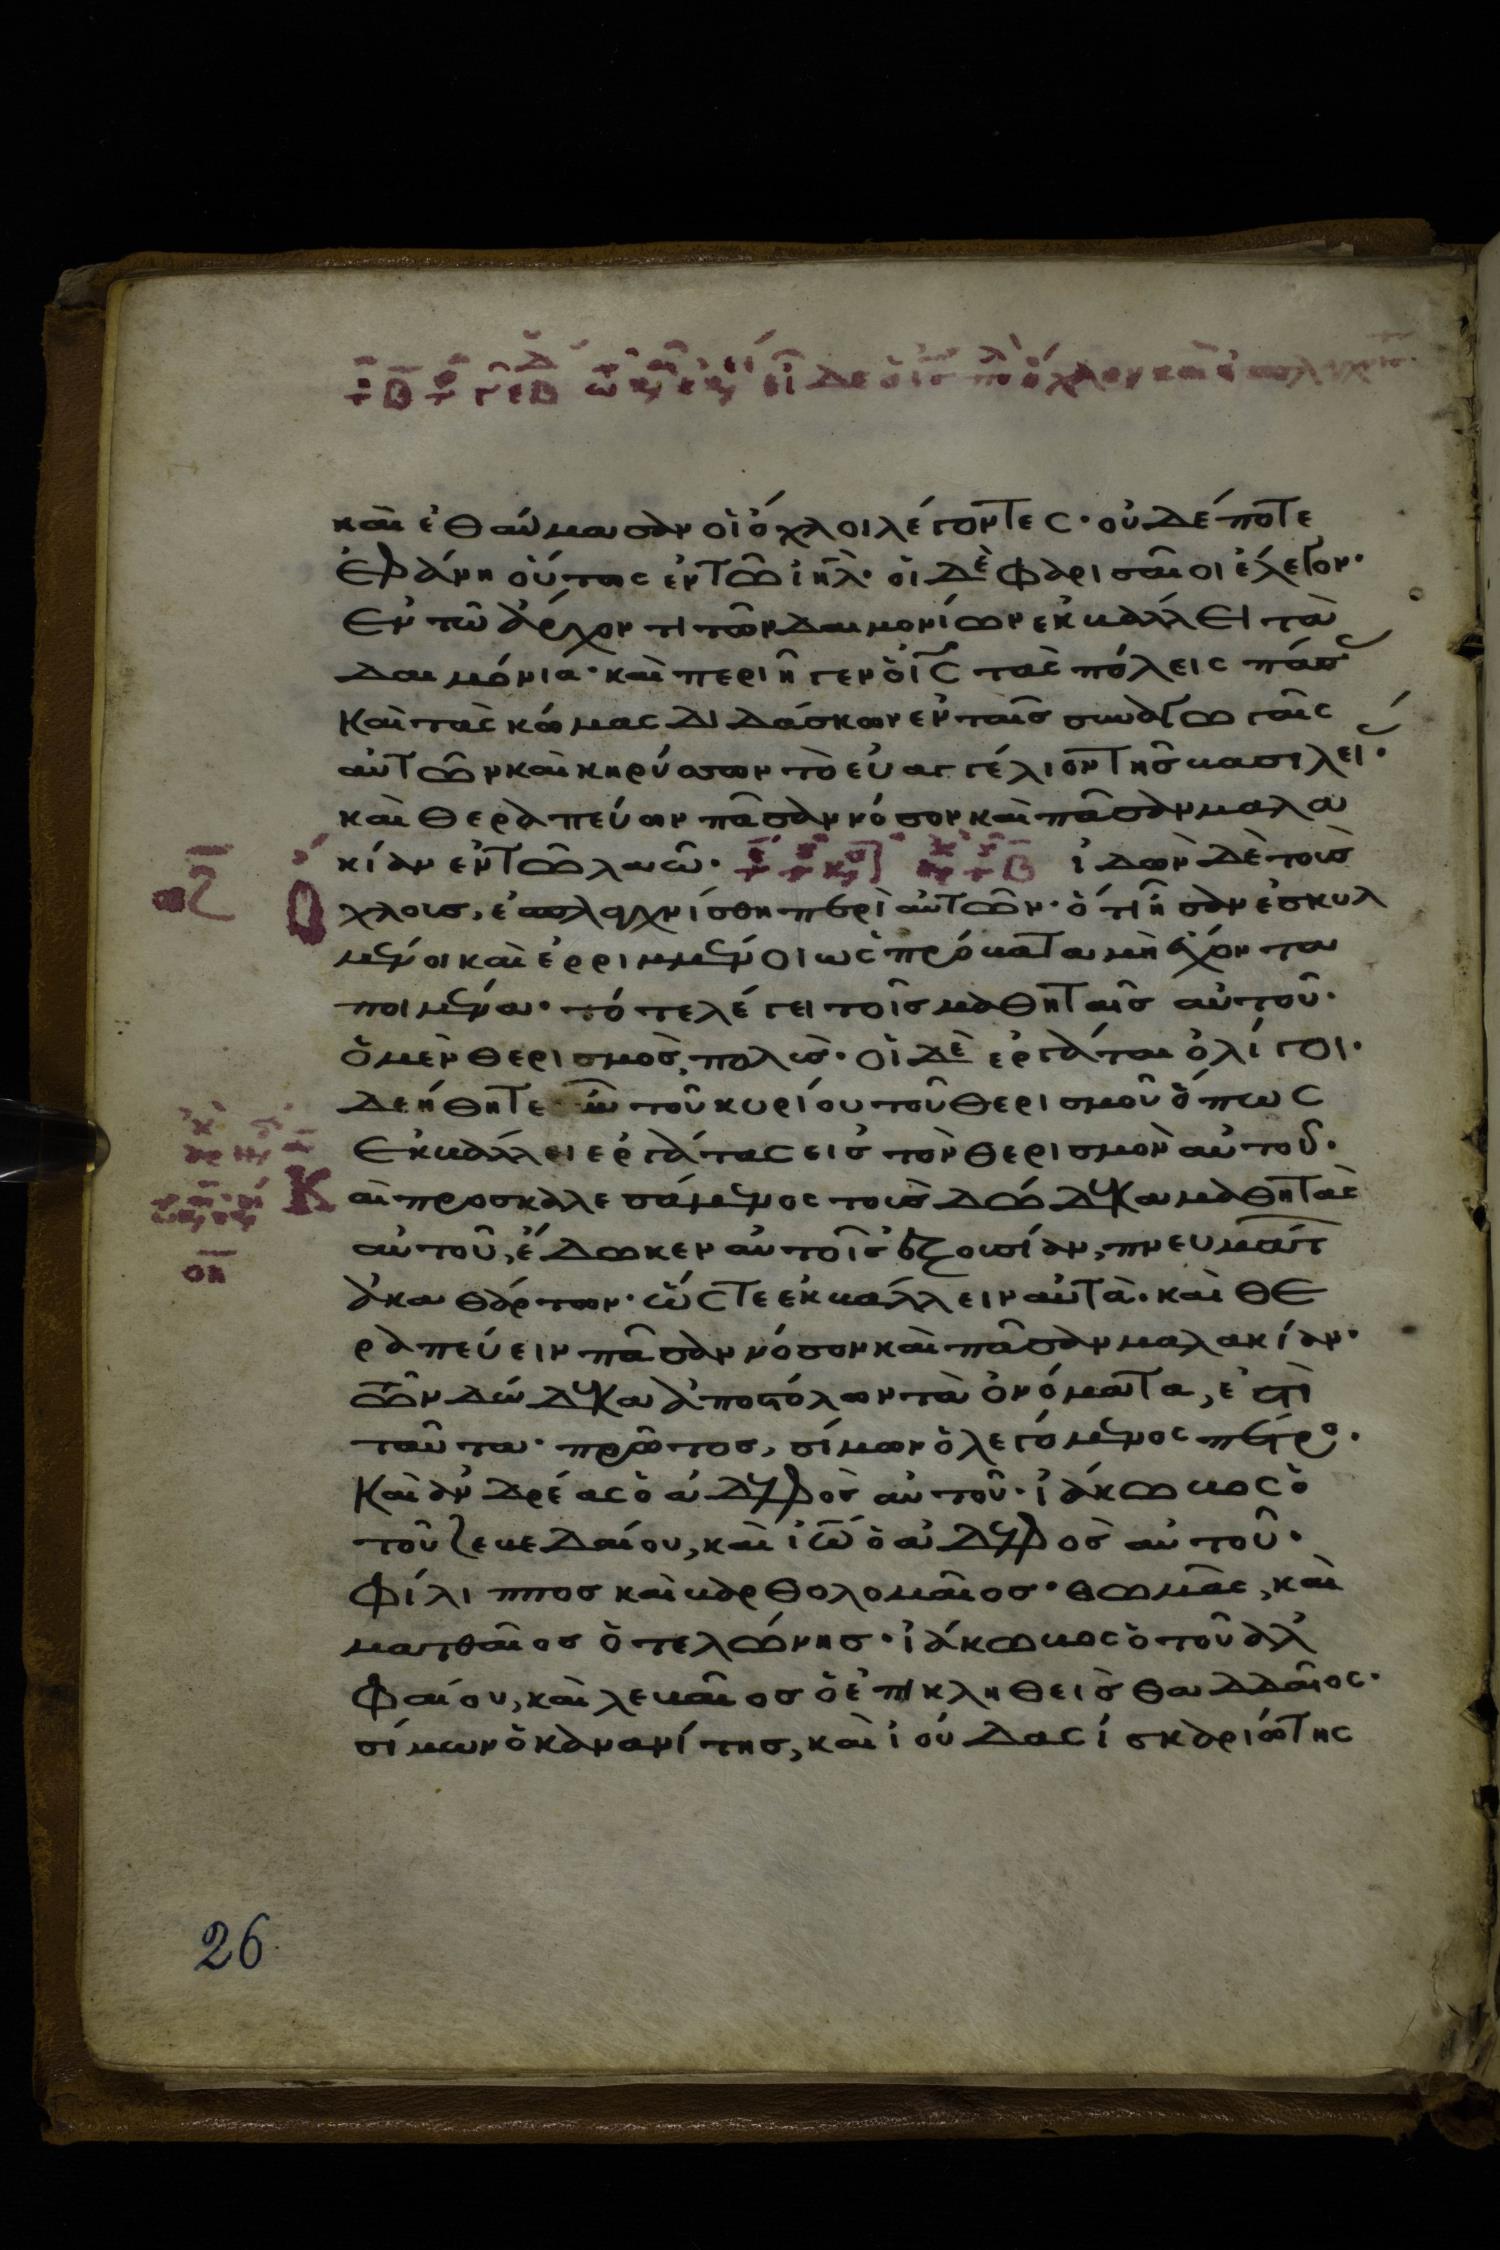 καὶ ἐθαύμασαν οἱ ὄχλοι λέγοντες· οὐδέποτε
ἐφάνη οὕτως ἐν τῶ ἰηλ· οἱ δὲ φαρισαῖοι ἔλεγον·
Ἐν τῶ ἄρχοντι τῶν δαιμονίων ἐκβάλλει τὰ
δαιμόνια· καὶ περιῆγεν ὁ ις τὰς πόλεις πάσ
Καὶ τὰς κώμας διδάσκων ἐν ταῖς συναγωγαῖς
αὐτῶν καὶ κηρύσσων τὸ εὐαγγέλιον τῆς βασιλεί·
καὶ θεραπεύων πᾶσαν νόσον καὶ πᾶσαν μαλα
κίαν ἐν τῶ λαῶ· ἰδὼν δὲ τοὺς
ὄχλους, ἐσπλαγχνίσθη περὶ αὐτῶν· ὅτι ἦσαν ἐσκυλ
μένοι καὶ ἐρριμμένοι ὡς πρόβατα μὴ ἔχοντα
ποιμένα· τότε λέγει τοῖς μαθηταῖς αὐτοῦ·
ὁ μὲν θερισμὸς, πολὺς· οἱ δὲ ἐργάται ὀλίγοι·
δεήθητε οὖν τοῦ κυρίου τοῦ θερισμοῦ ὅπως
Ἐκβάλλει ἐργάτας εἰς τὸν θερισμὸν αὐτοῦ·
Καὶ προσκαλεσάμενος τοὺς δώδεκα μαθητὰς
αὐτοῦ, ἔδωκεν αὐτοῖς ἐξουσίαν, πνευμάτ
ἀκαθάρτων· ὥστε ἐκβάλλειν αὐτὰ· καὶ θε
ραπεύειν πᾶσαν νόσον καὶ πᾶσαν μαλακίαν·
τῶν δώδεκα ἀποστόλων τὰ ὀνόματα, ἐστὶ
ταῦτα· πρῶτος, σίμων ὁ λεγόμενος πέτρο·
Καὶ ἀνδρέας ὁ ἀδελφὸς αὐτοῦ· ἰάκωβος ὁ
τοῦ ζεβεδαίου, καὶ ἰω ὁ ἀδελφὸς αὐτοῦ·
Φίλιππος καὶ βαρθολομαῖος· θωμᾶς, καὶ
ματθαῖος ὁ τελώνης· ἰάκωβος ὁ τοῦ ἀλ
Φαίου, καὶ λεβαῖος ὁ ἐπικληθεὶς θαδδαῖος·
σίμων ὁ κανανίτης, καὶ ἰούδας ἰσκαριώτης
26